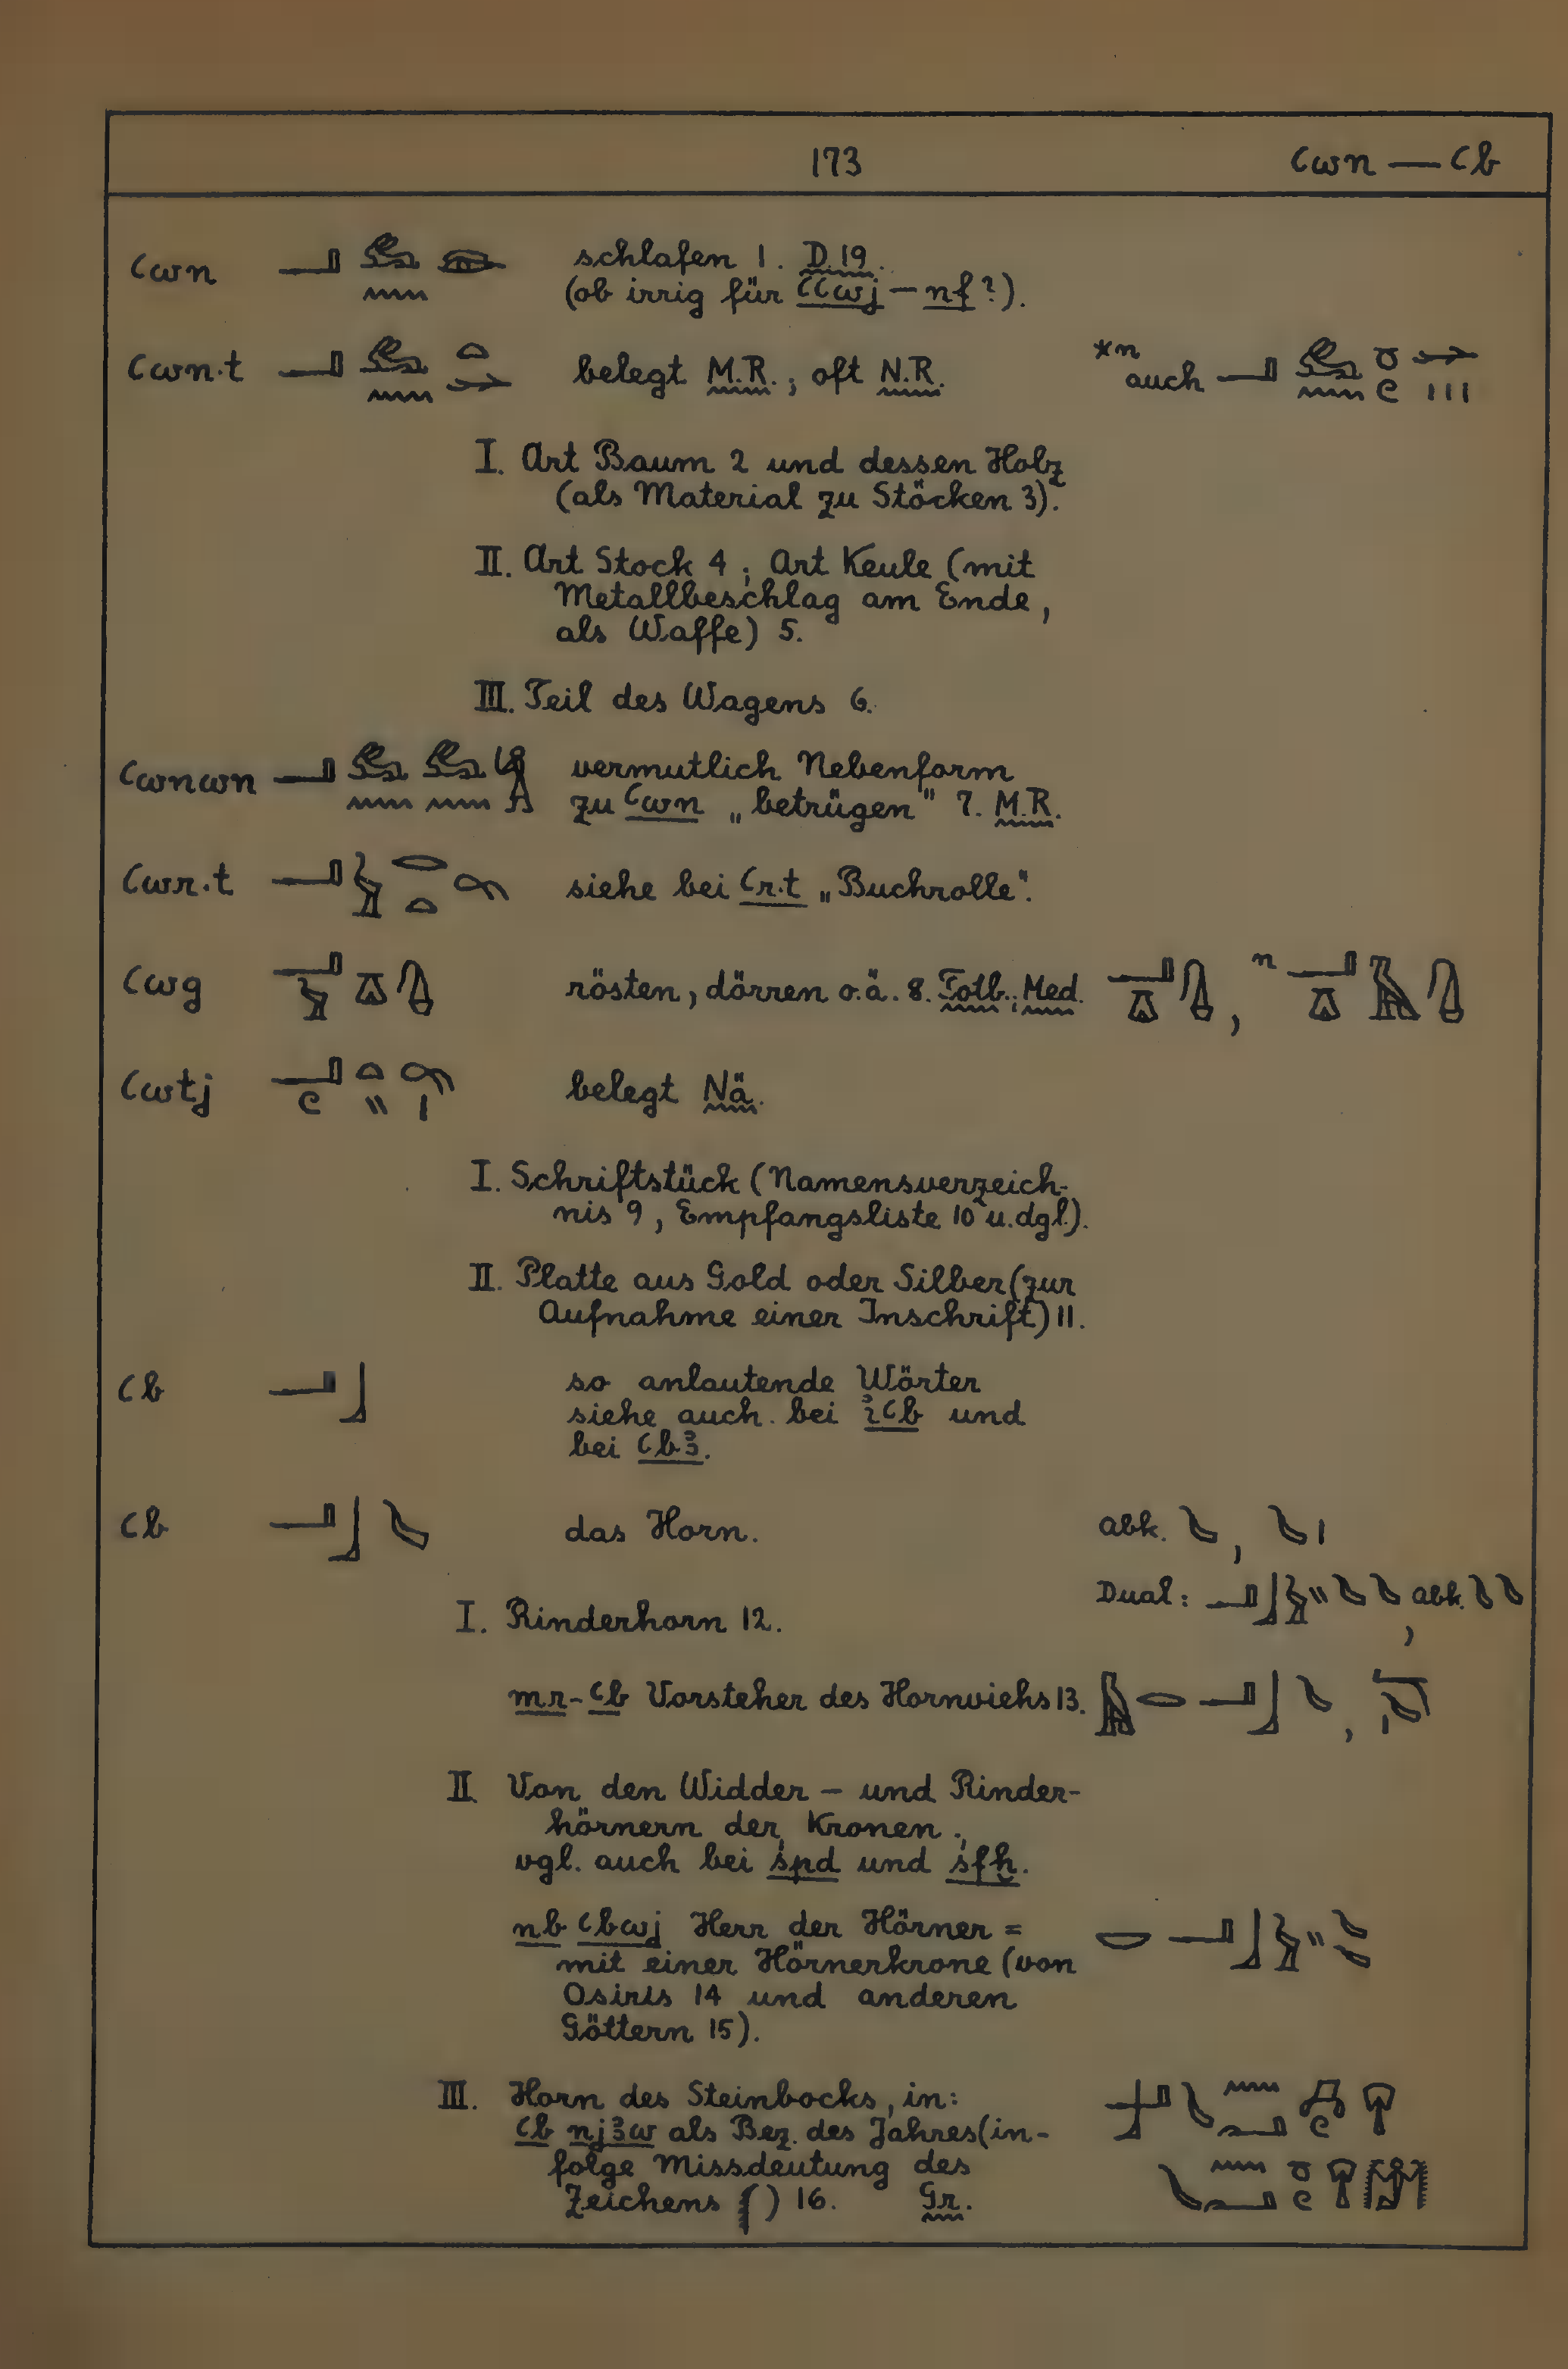 173 ꜥwn — ꜥb
ꜥwn schlafen 1. D.19.
(ob irrig für ꜥꜥwj – nf?).
ꜥwn.t belegt M.R.; oft N.R. *n
auch
I. Art Baum 2 und dessen Holz
(als Material zu Stöcken 3).
II. Art Stock 4; Art Keule (mit
Metallbeschlag am Ende,
als Waffe) 5.
III. Teil des Wagens 6.
ꜥwnwn vermutlich Nebenform
zu ꜥwn „betrügen" 7. M.R.
ꜥwr.t siehe bei ꜥr.t „Buchrolle".
ꜥwg rösten, dörren o.ä. 8. Totb.; Med. , n
ꜥwtj belegt Nä.
I. Schriftstück (Namensverzeich-
nis 9, Empfangsliste 10 u.dgl.).
II. Platte aus Gold oder Silber (zur
Aufnahme einer Inschrift) 11.
ꜥb so anlautende Wörter
siehe auch bei iꜥb und
bei ꜥbꜣ.
ꜥb das Horn. abk. ,
Dual: , abk.
I. Rinderhorn 12.
mr-ꜥb Vorsteher des Hornviehs 13. ,
II Von den Widder – und Rinder-
hörnern der Kronen;
vgl. auch bei śpd und śfḫ.
nb ꜥbwj Herr der Hörner =
mit einer Hörnerkrone (von
Osiris 14 und anderen
Göttern 15).
III. Horn des Steinbocks, in:
ꜥb njꜣw als Bez. des Jahres (in-
folge Missdeutung des
Zeichens ) 16. Gr.